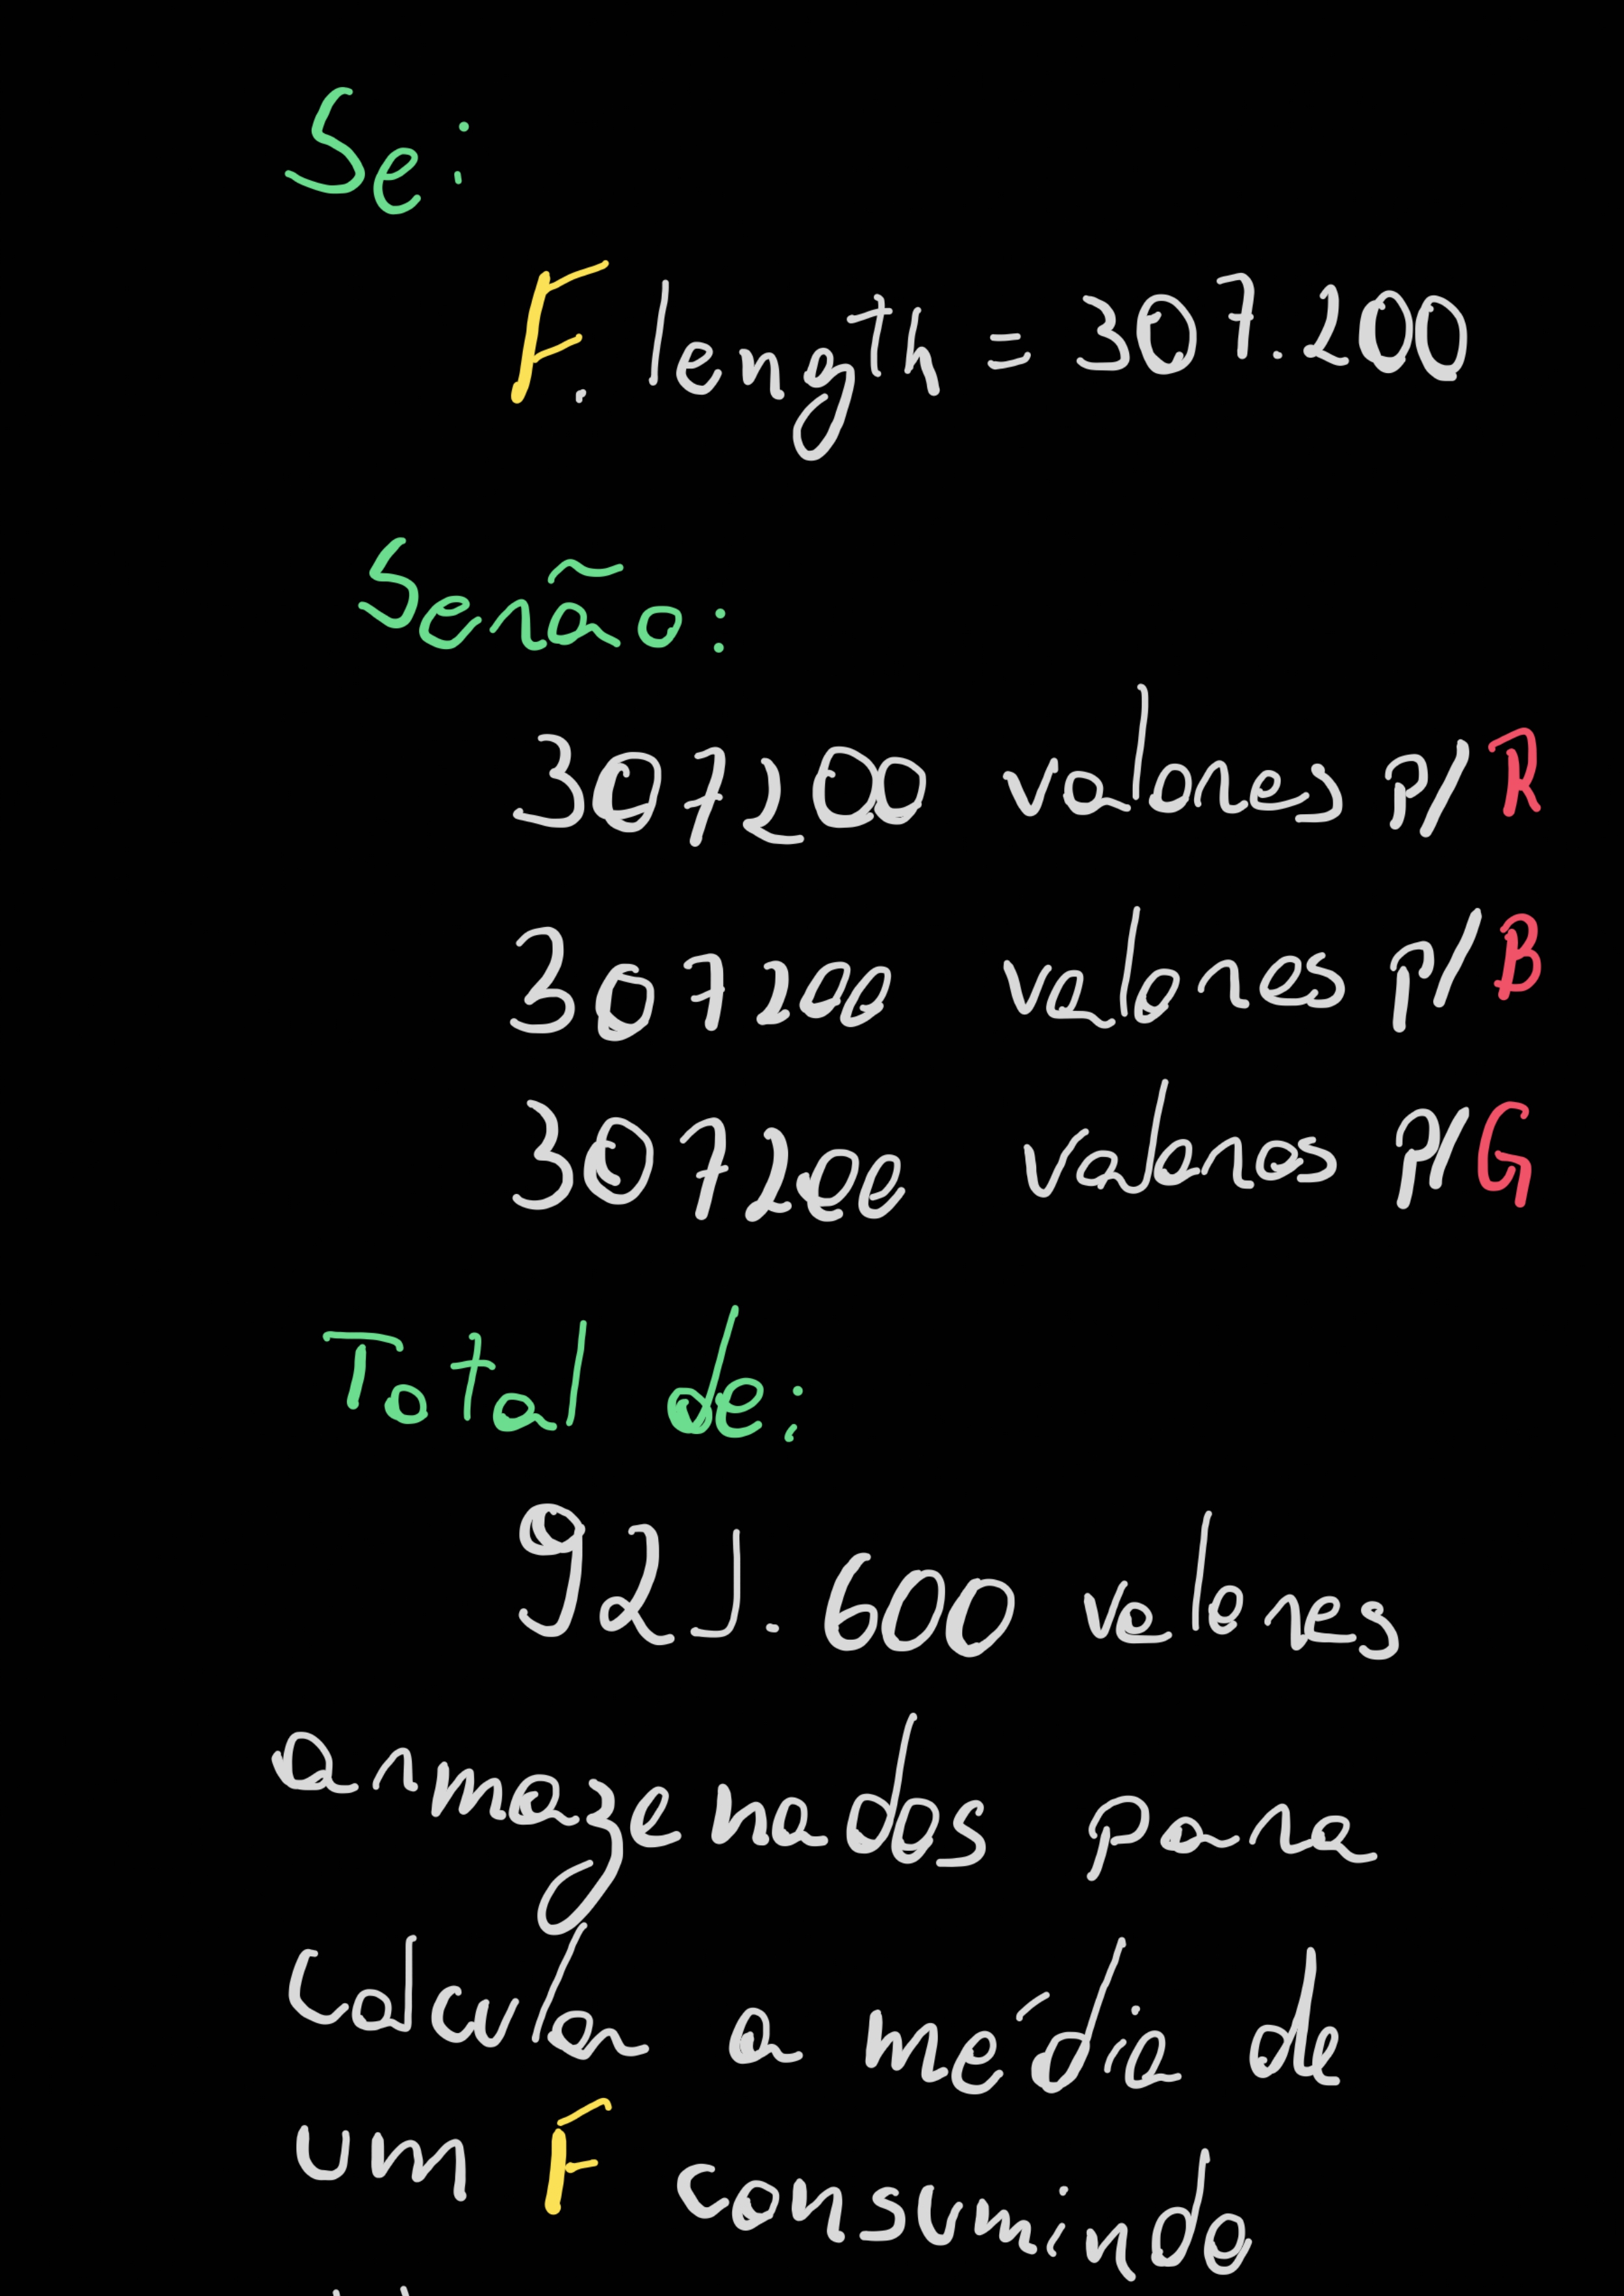 Se:
F. length = 307.200
Senão:
307200 valores p/ R
307200 valores p/ B
307200 valores p/ G
Total de:
921.600 valores
armazenados para
Calcular a média de
um F consumindo